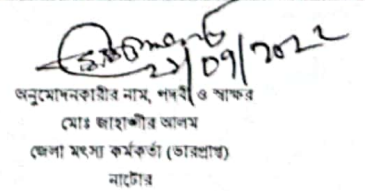 ২১/০৭/২০২২
অনুমোদনকারীর নাম, পদবী ও স্বাক্ষর
মোঃ জাহাঙ্গীর আলম
জেলা মৎস্য কর্মকর্তা (ভারপ্রাপ্ত)
নাটোর